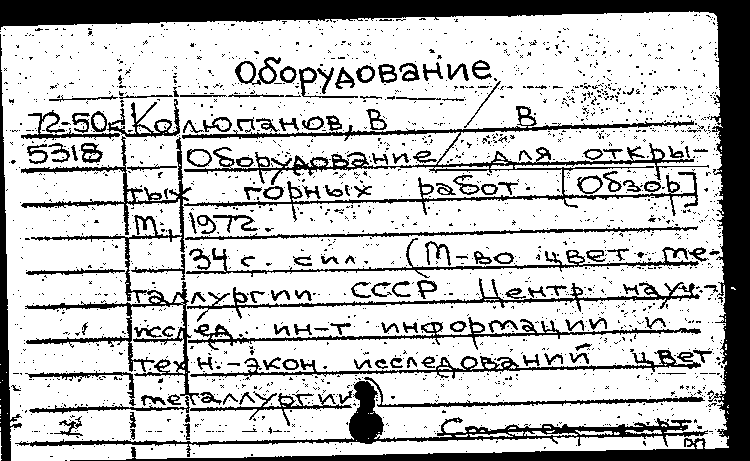 Оборудование
72-50 Колюпанов, В В
5318 Оборудование для откры-
тых горных работ. [Обзор]
М., 1972.
34 с. с ил. (М-во цвет. ме-
таллургии СССР. Центр. науч.-
исслед. ин-т информации и
техн.-экон. исследований цвет
металлургии).
См след. карт.